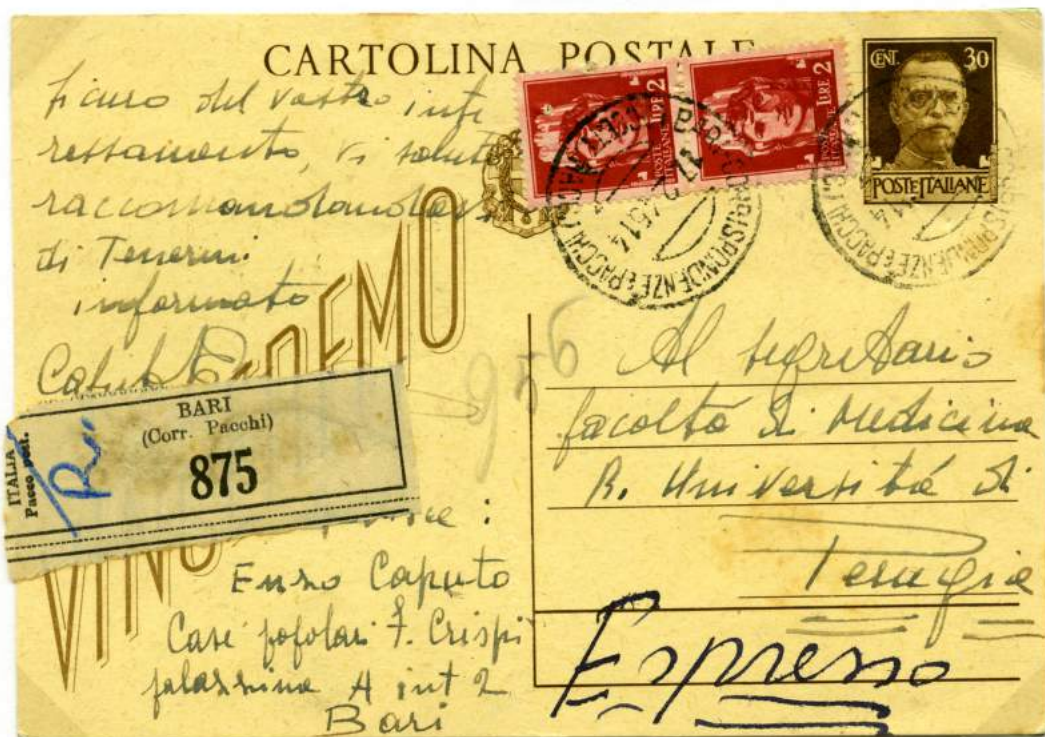 CARTOLINA POSTALE
CENT. 30
POSTE ITALIANE
LIRE 2
POSTE ITALIANE
LIRE 2
POSTE ITALIANE
BARI CORRISPONDENZE E PACCHI
CORRISPONDENZE E PACCHI
sicuro del vostro inte
ressamento, vi saluto
raccomandandovi
di Tenermi
informato
VINCEREMO
ITALIA
Pacco post.
BARI
(Corr. Pacchi)
875
Enzo Caputo
Case popolari F. Crispi
palazzina A int 2
Bari
Al segretario
facoltà di Medicina
R. Università di
Perugia
Espresso